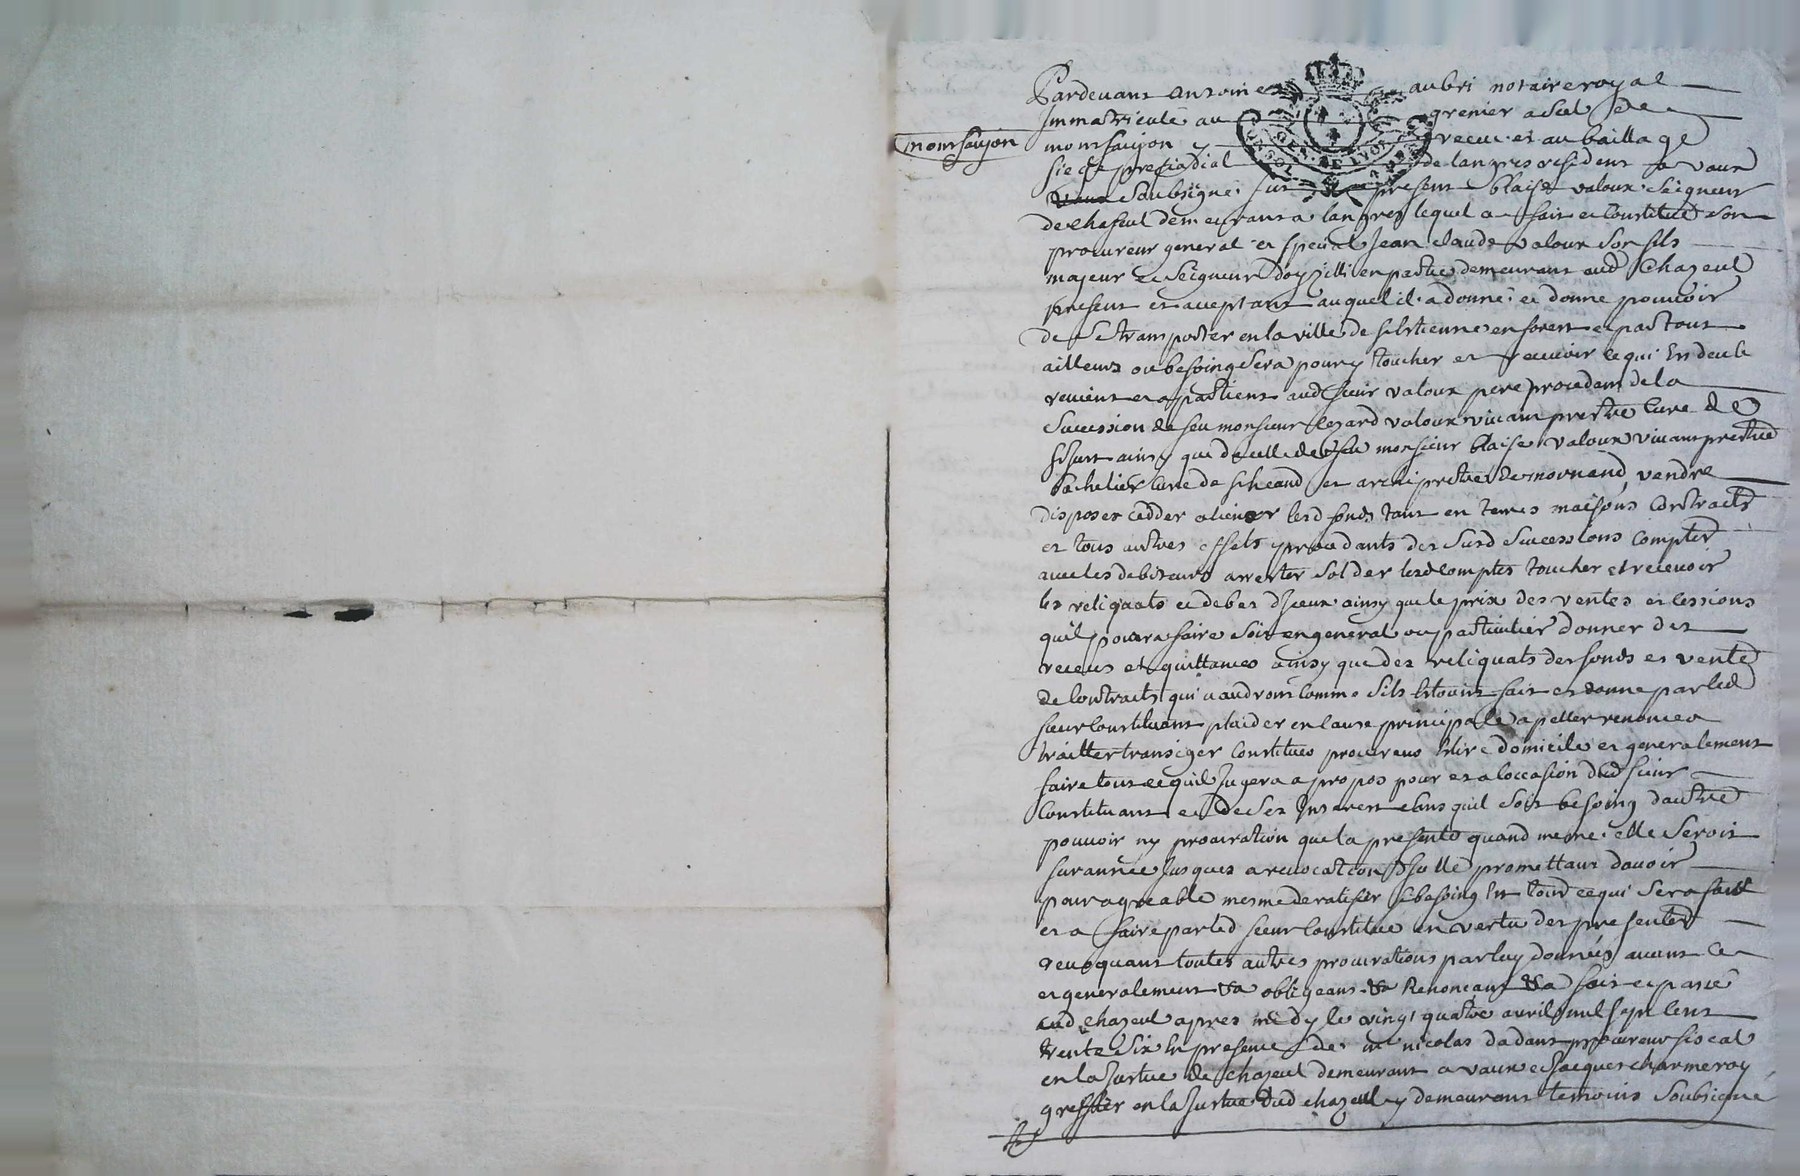 Pardevant Antoine aubri notaire royal
Immatriculé au grenier a sel de
montsaujon
montsaujon receu et au bailliage
siege presidial de langres resident a vaux
soubsigné fut present blaise valoux seigneur
de chaseul demeurant a langres lequel a fait et constitué son
procureur general et special Jean claude valoux son fils
majeur et seigneur en partie demeurant aud chazeul
present et acceptant auquel il a donné et donne pouvoir
de se transporter en la ville de st estienne en forest et partout
ailleurs ou besoing sera pour y toucher et recevoir ce qui est deub
revient et apartient aud sieur valoux pere procedant de la
succession de feu monsieur valoux vivant prestre curé de
ainsy que de celle de feu monsieur blaise valoux vivant prestre
bachelier curé de et archiprestre de mornand, vendre
disposer cedder aliener lesd fonds tant en terres maisons contracts
et tous autres effets procedants des susd successions compter
avec les debiteurs arrester solder lesd comptes toucher et recevoir
les reliquats et debet d'Iceux ainsy que le prix des ventes et cessions
quil pourra faire soit en general ou particulier donner des
receus et quittances ainsy que des reliquats des fonds et vente
de contracts qui vaudront comme s'ils estoient fait et donné par led
sieur constituant plaider en cause principale apeller renoncer
traitter transiger constituer procureurs Elire domicile et generalement
faire tout ce quil Jugera a propos pour et a loccasion dud sieur
Constituant et de ses Interest sans quil soit besoing dautre
pouvoir ny procuration que la presente quand mesme elle seroit
surannée Jusques a revocation promettant davoir
pour agreable mesme de ratifier si besoing Est tout ce qui sera fait
et a faire par led sieur constitué en vertu des presentes
revoquant toutes autres procurations par luy données avant ce
et generalement &a obligeant &a Renonceant &a fait et passé
aud chazeul apres midy le vingt quatre avril mil sept cent
trente six En presence de me nicolas dadant procureur fiscal
en la Justice de chazeul demeurant a vaux et Jacques charmeroy
greffier en la Justice dud chazeul y demeurant temoins soubsigné